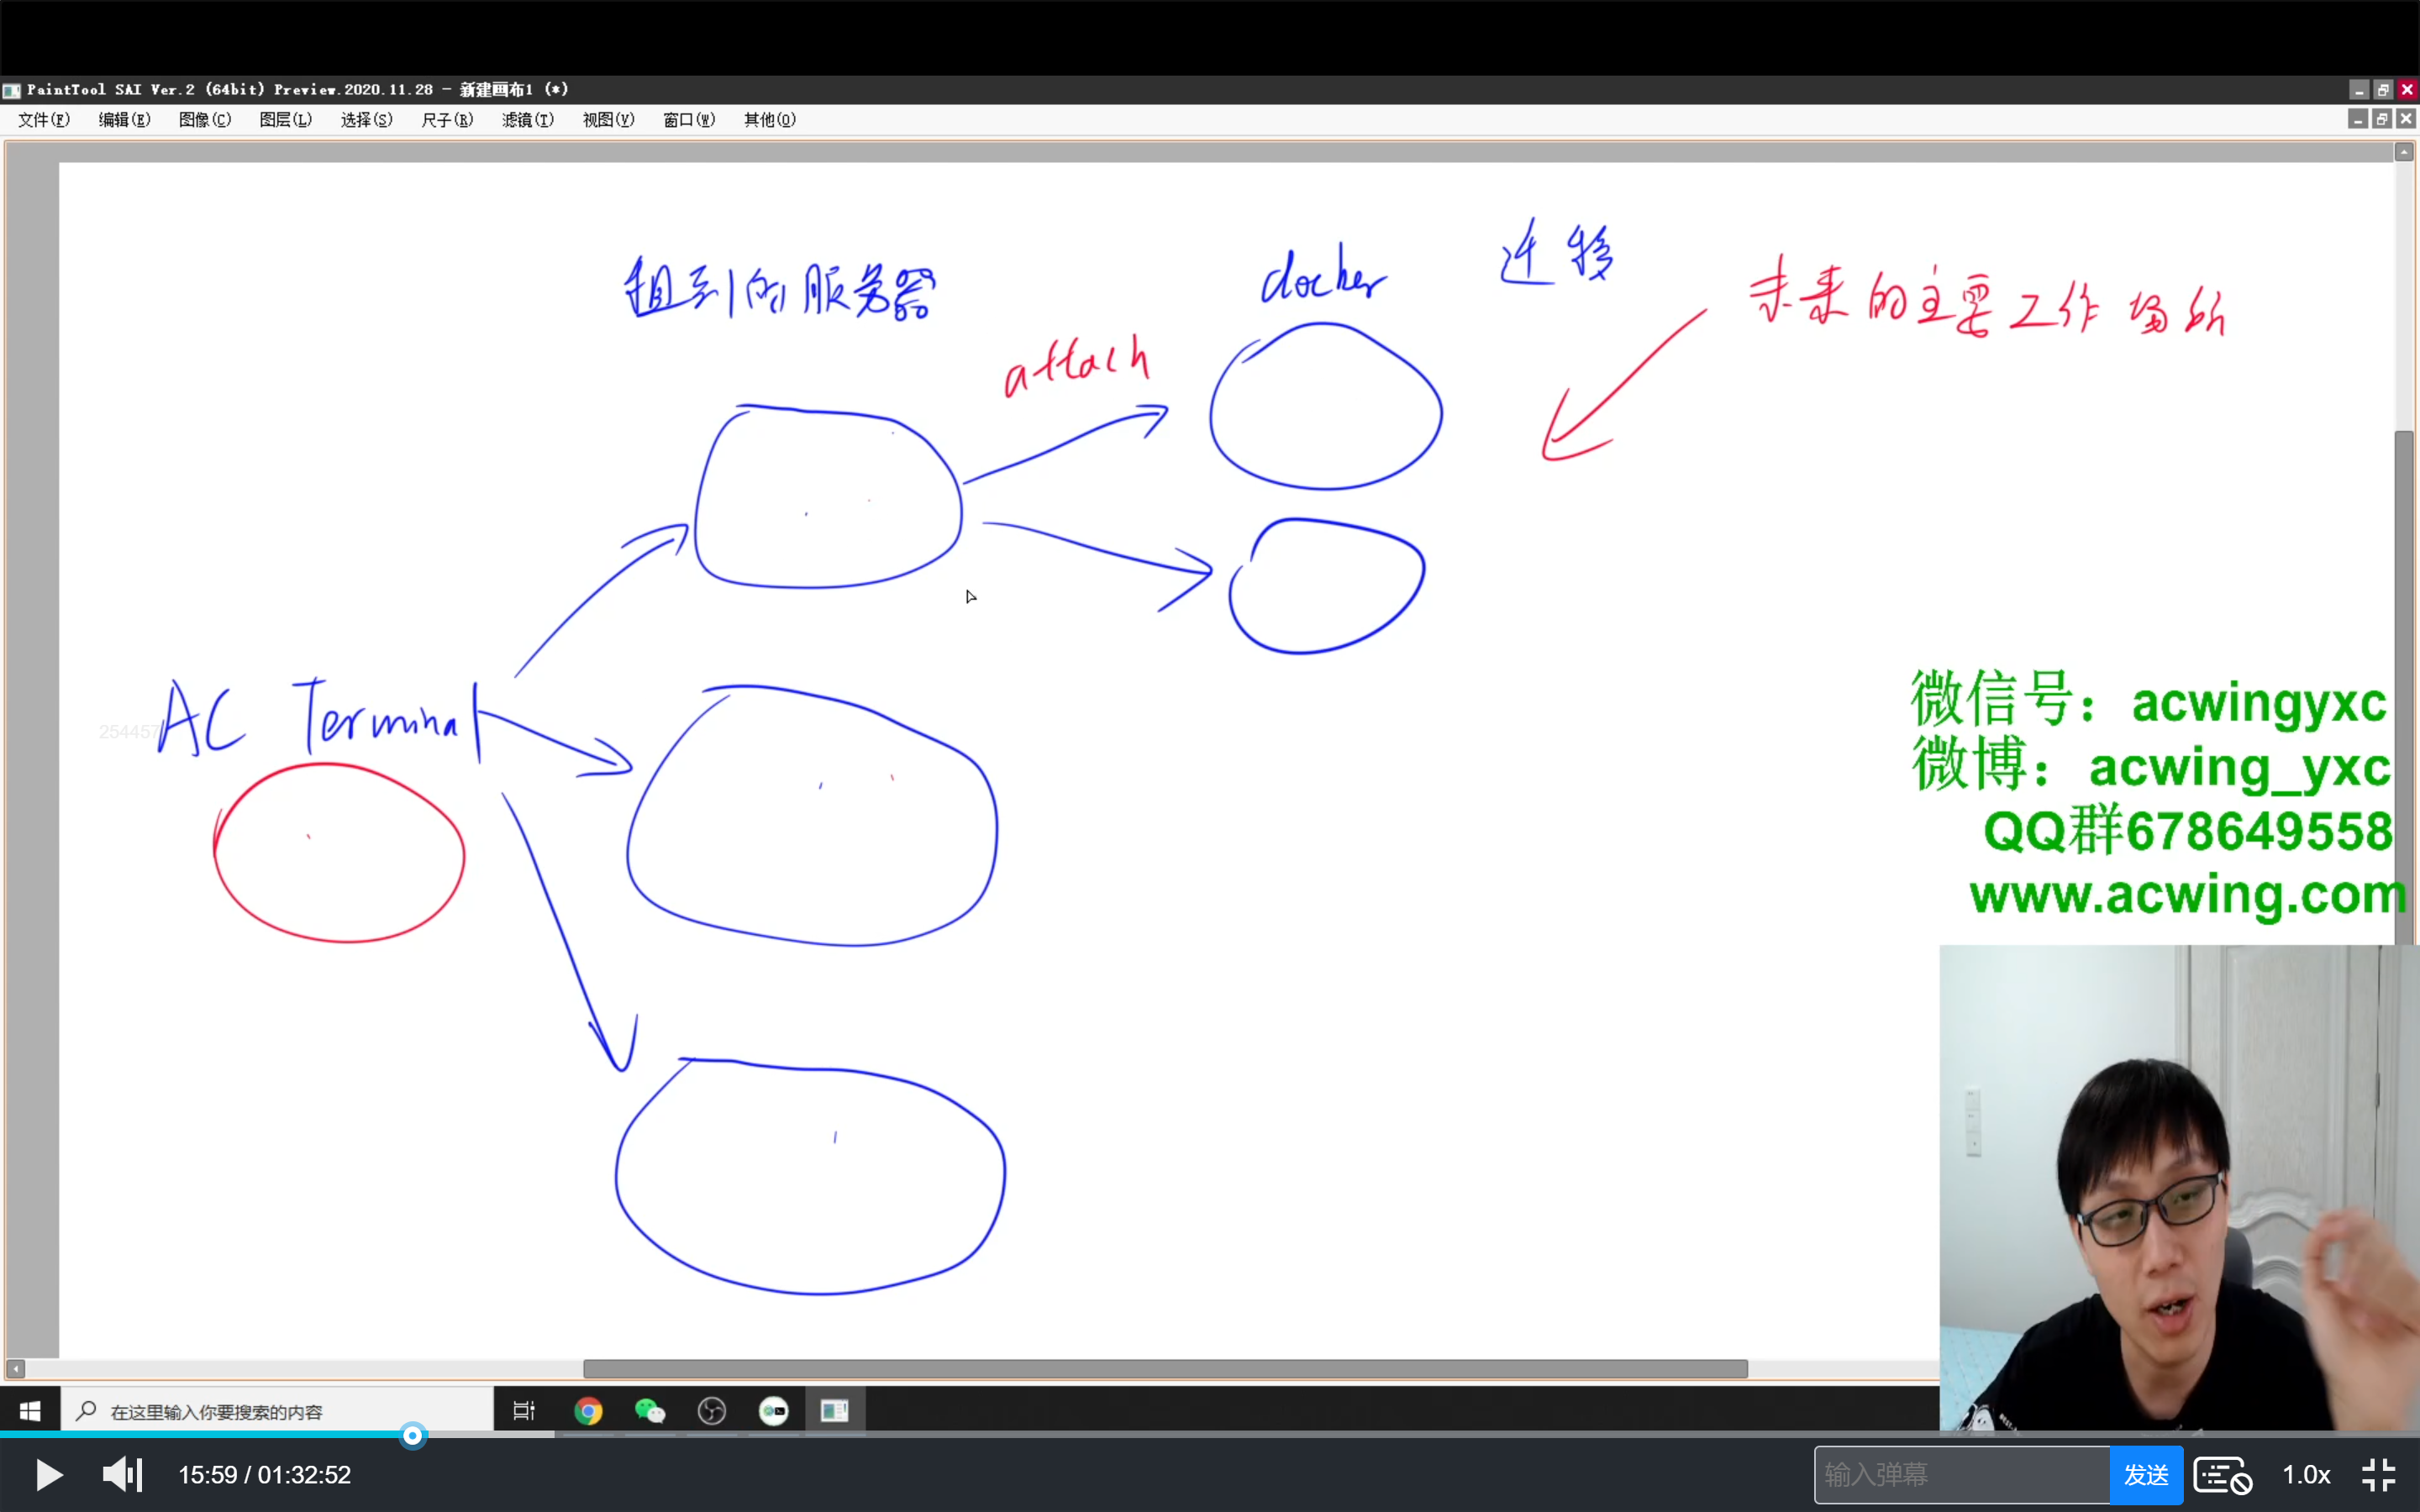 PaintTool SAI Ver.2 (64bit) Preview.2020.11.28 - 新建画布1 (*)
文件(F) 编辑(E) 图像(C) 图层(L) 选择(S) 尺子(R) 滤镜(T) 视图(V) 窗口(W) 其他(O)
租到的服务器
docker
迁移
未来的主要工作场所
attach
AC Terminal
254457
微信号：acwingyxc
微博：acwing_yxc
QQ群678649558
www.acwing.com
在这里输入你要搜索的内容
15:59 / 01:32:52
输入弹幕
发送
1.0x